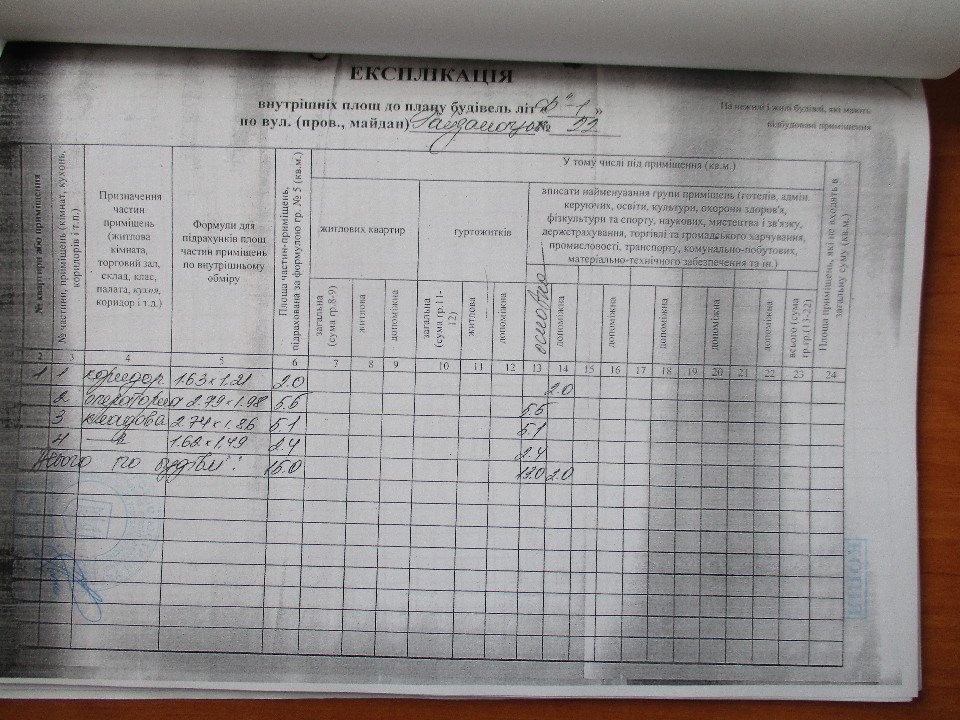 ЕКСПЛІКАЦІЯ
внутрішніх площ до плану будівель літ „Ф"-1„
по вул. (пров., майдан) № 22
На нежилі і жилі будівлі, які мають
відбудовані приміщення
№ квартири або приміщення
№ частини, приміщень (кімнат, кухонь,
коридорів і т.п.)
Призначення
частин
приміщень
(житлова
кімната,
торговий зал,
склад, клас,
палата, кухня,
коридор і т.д.)
Формули для
підрахунків площ
частин приміщень
по внутрішньому
обміру
Площа частин-приміщень,
підрахована за формулою гр. № 5 (кв.м.)
У тому числі під приміщення (кв.м.)
житлових квартир
гуртожитків
вписати найменування групи приміщень (готелів, адмін.
керуючих, освіти, культури, охорони здоров'я,
фізкультури та спорту, наукових, мистецтва і зв'язку,
держстрахування, торгівлі та громадського харчування,
промисловості, транспорту, комунально-побутових,
матеріально-технічного забезпечення та ін.)
Площи приміщень, які не входять в
загальну суму (кв.м.)
загальна
(сума гр.8-9)
житлова
допоміжна
загальна
(сума гр.11-
12)
житлова
допоміжна
основна
допоміжна
допоміжна
допоміжна
допоміжна
допоміжна
всього (сума
гр.гр.(13-22)
2 3 4 5 6 7 8 9 10 11 12 13 14 15 16 17 18 19 20 21 22 23 24
1 1 коридор 1.63 х 1.21 2.0 2.0
2 операторна 2.79 х 1.98 5.5 5.5
3 кладова 2.74 х 1.86 5.1 5.1
4 1.62 х 1.49 2.4 2.4
Всього по будівлі: 15.0 13.0 2.0